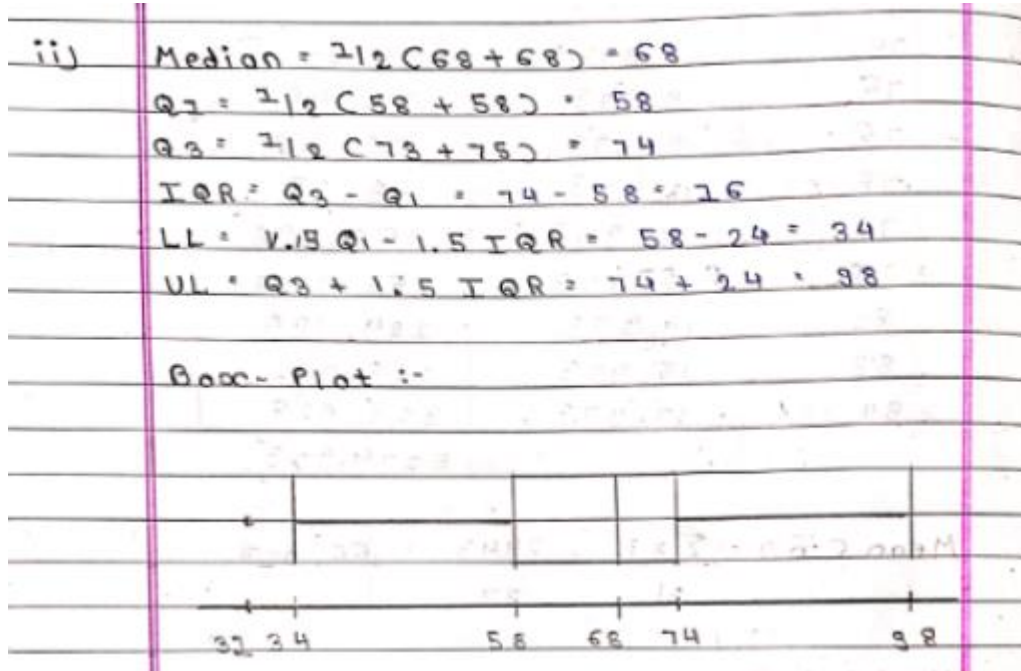 ii) Median = 1/2 (68 + 68) = 68
Q1 = 1/2 (58 + 58) = 58
Q3 = 1/2 (73 + 75) = 74
IQR = Q3 - Q1 = 74 - 58 = 16
LL = Q1 - 1.5 IQR = 58 - 24 = 34
UL = Q3 + 1.5 IQR = 74 + 24 = 98
Box-Plot :-
32 34 58 68 74 98